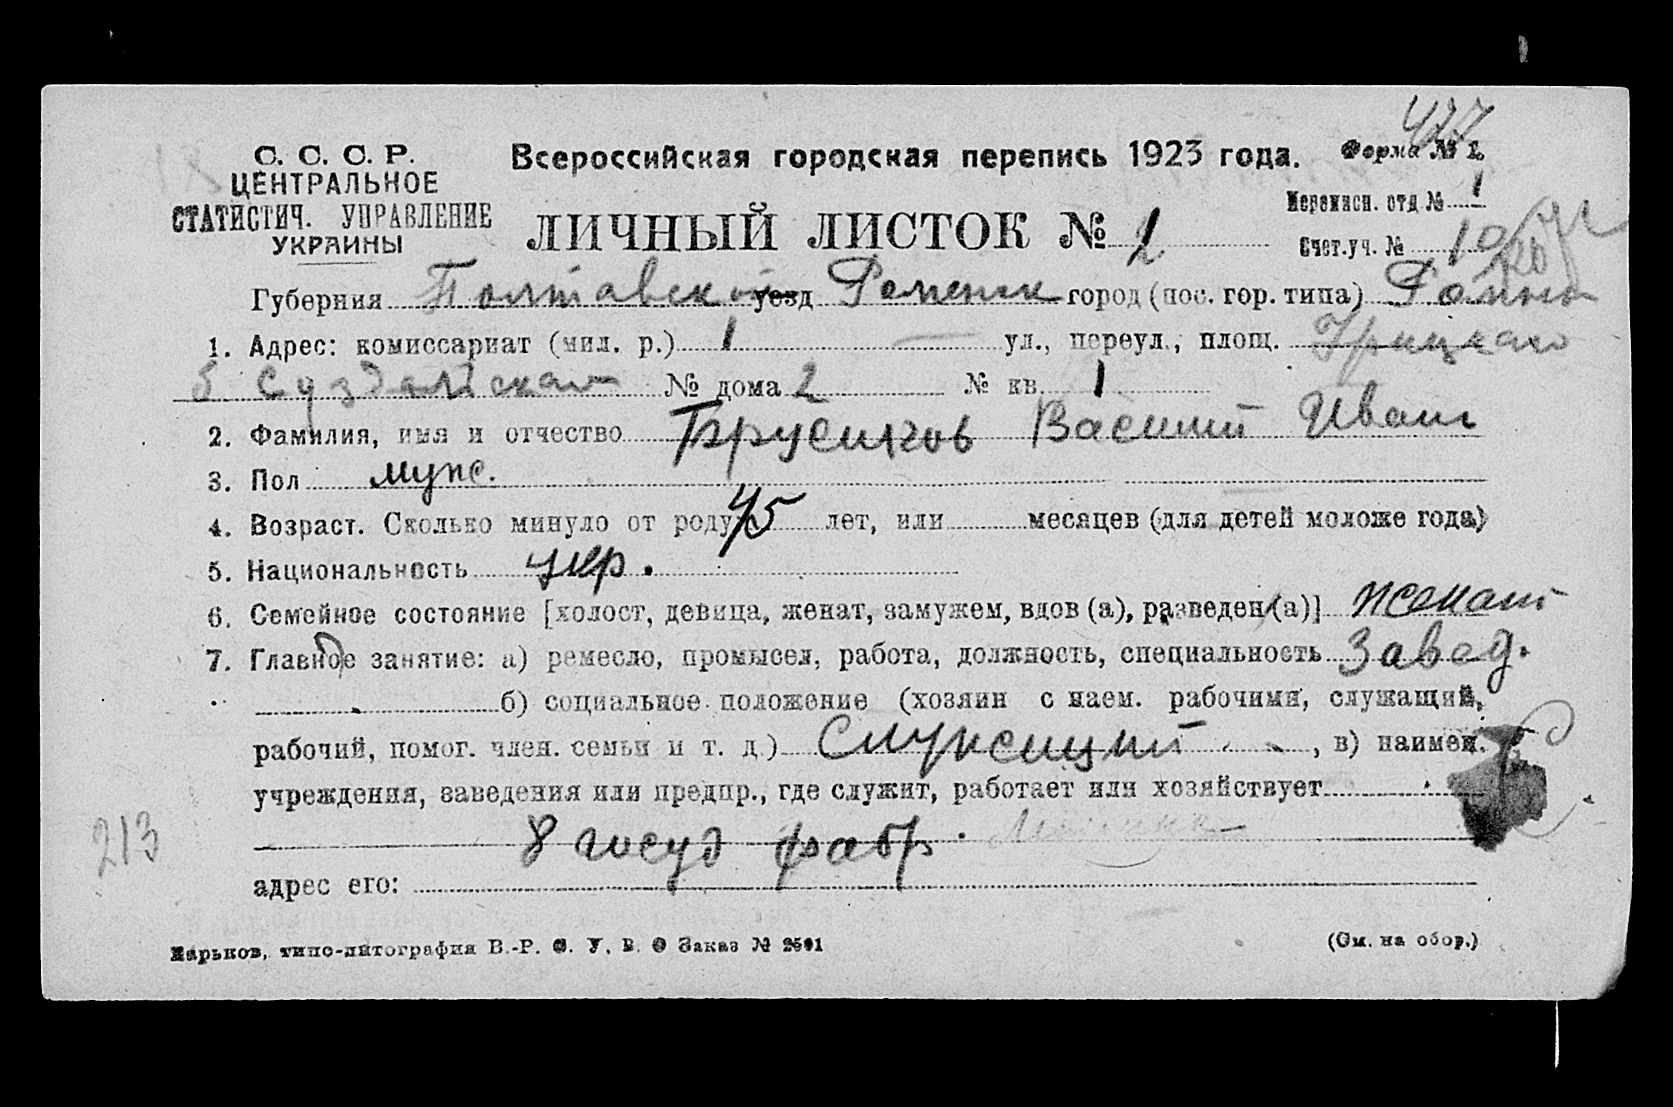 427
С. С. С. Р.
ЦЕНТРАЛЬНОЕ
СТАТИСТИЧ. УПРАВЛЕНИЕ
УКРАИНЫ
Всероссийская городская перепись 1923 года. Форма № 1.
ЛИЧНЫЙ ЛИСТОК № 2
Переписн. отд № 1
Счет.уч. № 10
Губерния Полтавской уезд Роменск город (пос. гор. типа) Ромны
1. Адрес: комиссариат (мил. р.) 1 ул., переул., площ. Урицкаго
б Суздальская № дома 2 № кв. 1
2. Фамилия, имя и отчество Василий Иван
3. Пол муж.
4. Возраст. Сколько минуло от роду 45 лет, или месяцев (для детей моложе года)
5. Национальность укр.
6. Семейное состояние [холост, девица, женат, замужем, вдов (а), разведен (а)] женат
7. Главное занятие: а) ремесло, промысел, работа, должность, специальность Завед.
б) социальное положение (хозяин с наем. рабочими, служащий,
рабочий, помог. член. семьи и т. д.) Служащий, в) наимен.
учреждения, заведения или предпр., где служит, работает или хозяйствует
8 госуд фабр.
адрес его:
213
Харьков, типо-литография В.-Р. Заказ № 2591
(См. на обор.)